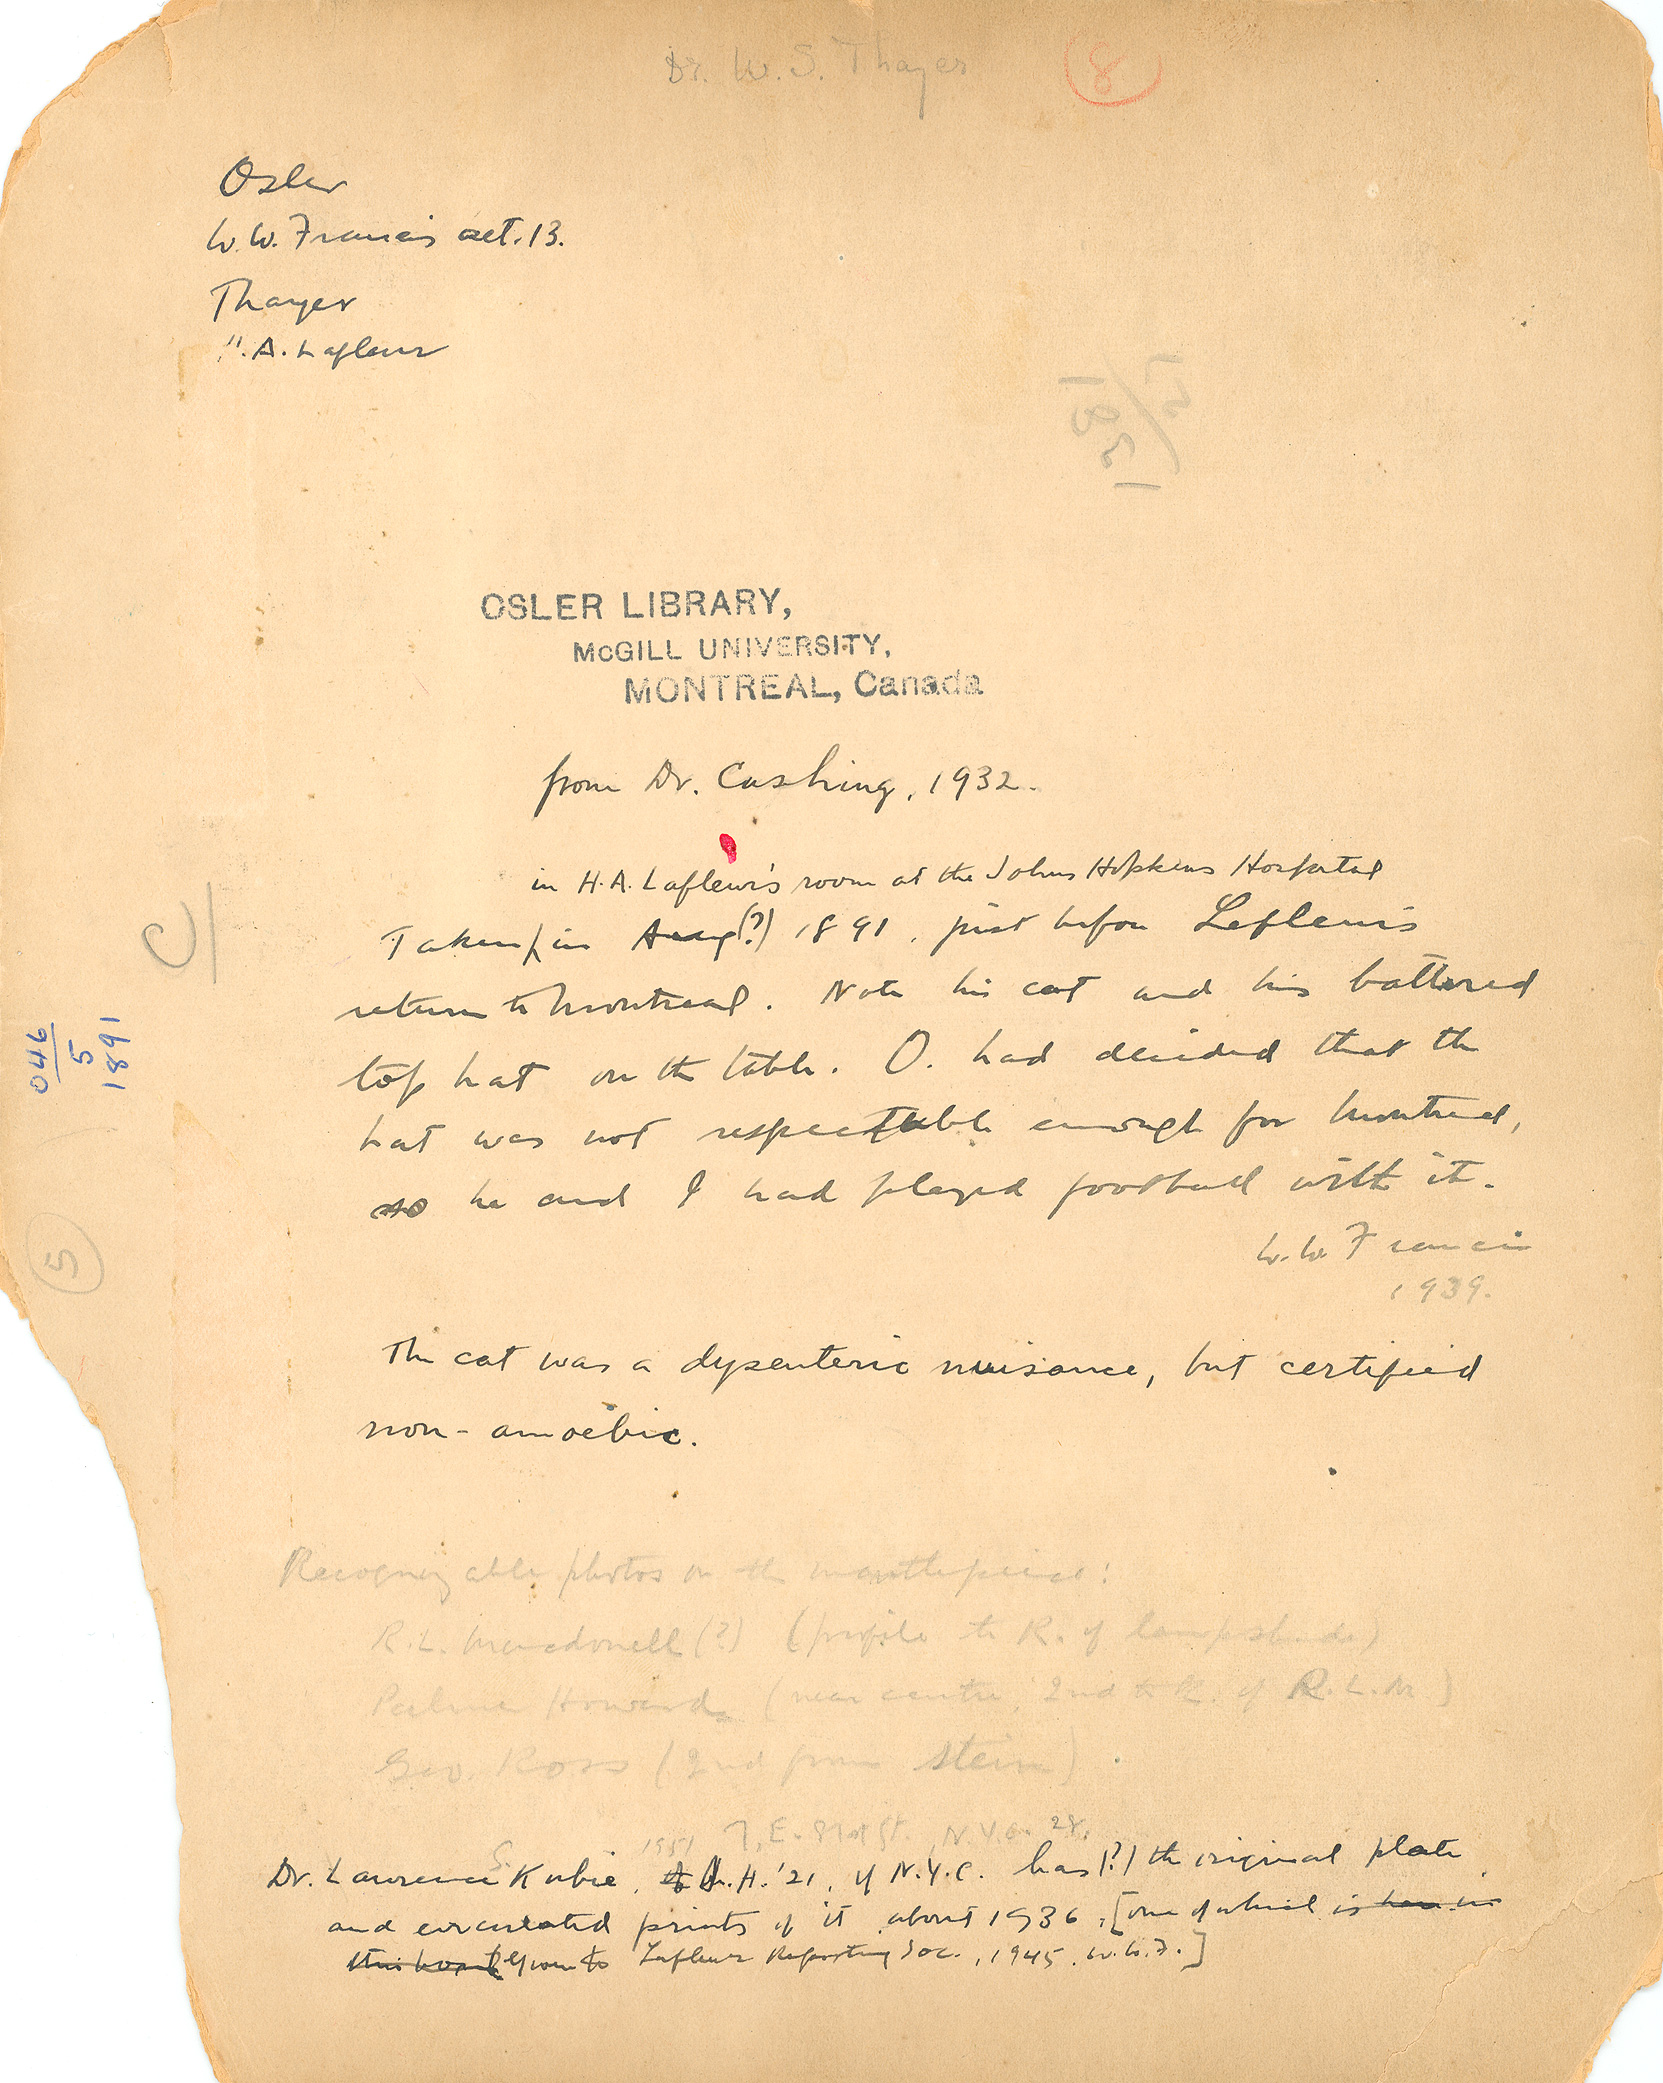 Dr. W. S. Thayer
8
Osler
W. W. Francis aet. 13.
Thayer
H. A. Lafleur
OSLER LIBRARY,
McGILL UNIVERSITY,
MONTREAL, Canada
from Dr. Cushing, 1932.
in H. A. Lafleur's room at the Johns Hopkins Hospital
Taken in Aug (?) 1891, just before Lafleur's
return to Montreal. Note his cat and his battered
top hat on the table. O. had decided that the
hat was not respectable enough for Montreal,
so he and I had played football with it.
W. W. Francis
1939.
The cat was a dysenteric nuisance, but certified
non-amoebic.
046
5
1891
5
Recognizable photos on the mantlepiece:
R. L. Macdonell (?) (profile to R. of lampshade)
Palmer Howard (near centre, 2nd to R. of R. L. M)
Geo. Ross (2nd from stein).
1951 7, E. 81st St. N.Y. 28.
Dr. Lawrence S. Kubie, J.H.H. '21, of N.Y.C. has (?) the original plate
and circulated prints of it about 1936. [one of which is here in
this book given to Lafleur Reporting Soc., 1945. W.W.F.]